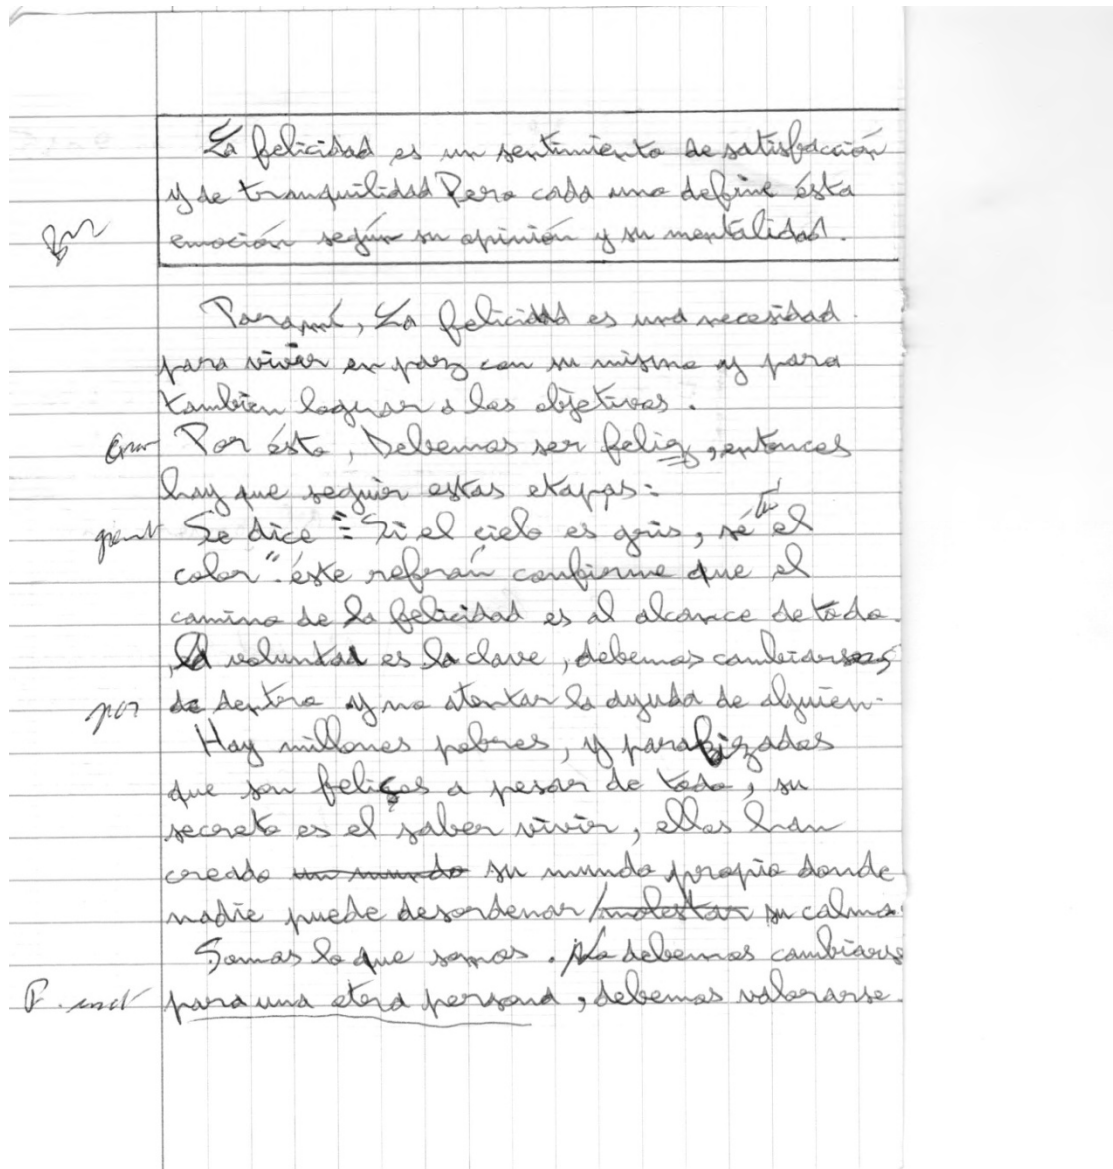 La felicidad es un sentimiento de satisfacción
y de tranquilidad Pero cada uno define ésta
emoción según su opinión y su mentalidad.
Para mí, La felicidad es una necesidad
para vivir en paz con su mismo y para
tambien lograr a los objetivos.
Por ésto, Debemos ser feliz, entonces
hay que seguir estas etapas:
Se dice : "Si el cielo es gris, sé tú el
color". éste referán confirme que el
camino de la felicidad es al alcance de todo.
, la voluntad es la clave, debemos cambiarnos
de dentro y no atentar la ayuda de alguien.
Hay millones pobres, y paralizados
que son felices a pesar de todo, su
secreto es el saber vivir, ellos han
creado un mundo su mundo propio donde
nadie puede desordenar /molestar su calma.
Somos lo que somos. No debemos cambiarse
para una otra persona, debemos valorarse.